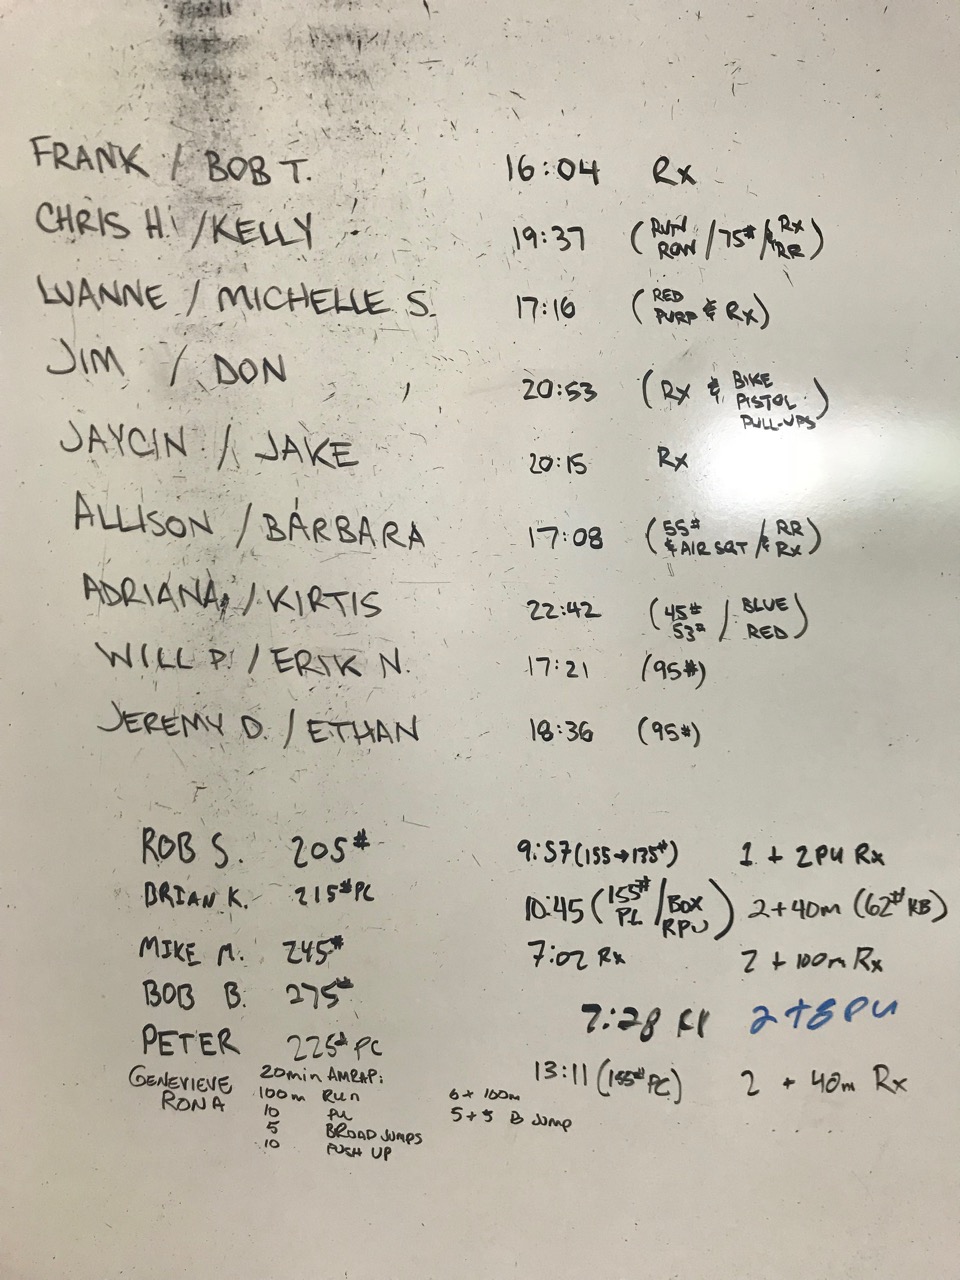 FRANK / BOB T. 16:04 Rx
CHRIS H. / KELLY 19:37 (RUN ROW / 75# / Rx & RR)
LUANNE / MICHELLE S. 17:16 (RED PURP & Rx)
JIM / DON 20:53 (Rx & BIKE PISTOL PULL-UPS)
JAYCIN / JAKE 20:15 Rx
ALLISON / BARBARA 17:08 (55# & AIR SQT / RR & Rx)
ADRIANA / KIRTIS 22:42 (45# 53# / BLUE RED)
WILL P. / ERIK N. 17:21 (95#)
JEREMY D. / ETHAN 18:36 (95#)
ROB S. 205# 9:57 (155→135#) 1 + 2PU Rx
BRIAN K. 215# PC 10:45 (155# PC / BOX RPU) 2+40m (62# KB)
MIKE M. 245# 7:02 Rx 2 + 100m Rx
BOB B. 275# 7:28 2+8 PU
PETER 225# PC 13:11 (155# PC) 2 + 40m Rx
GENEVIEVE 20min AMRAP:
RONA 100m RUN 6 + 100m
10 PU 5+5 B JUMP
5 BROAD JUMPS
10 PUSH UP